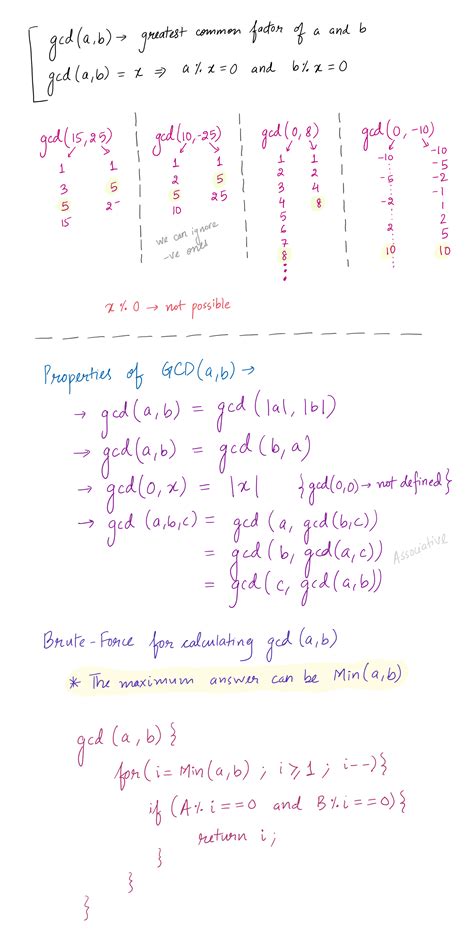 gcd(a,b) → greatest common factor of a and b
gcd(a,b) = x ⇒ a % x = 0 and b % x = 0
gcd(15,25) gcd(10,-25) gcd(0,8) gcd(0,-10)
1 1 1 1 1 1 -10 -10
3 5 2 5 2 2 -5 -5
5 25 5 25 3 4 -2 -2
15 10 4 8 2 -1
5 10 1
6 2
7 5
8 10
we can ignore
-ve ones
x % 0 → not possible
Properties of GCD(a,b) →
→ gcd(a,b) = gcd(|a|, |b|)
→ gcd(a,b) = gcd(b,a)
→ gcd(0,x) = |x| {gcd(0,0) → not defined}
→ gcd (a,b,c) = gcd (a, gcd(b,c))
= gcd (b, gcd(a,c)) Associative
= gcd(c, gcd(a,b))
Brute-Force for calculating gcd(a,b)
* The maximum answer can be Min(a,b)
gcd (a,b) {
for(i = Min(a,b) ; i ≥ 1 ; i--){
if (A % i == 0 and B % i == 0){
return i;
}
}
}